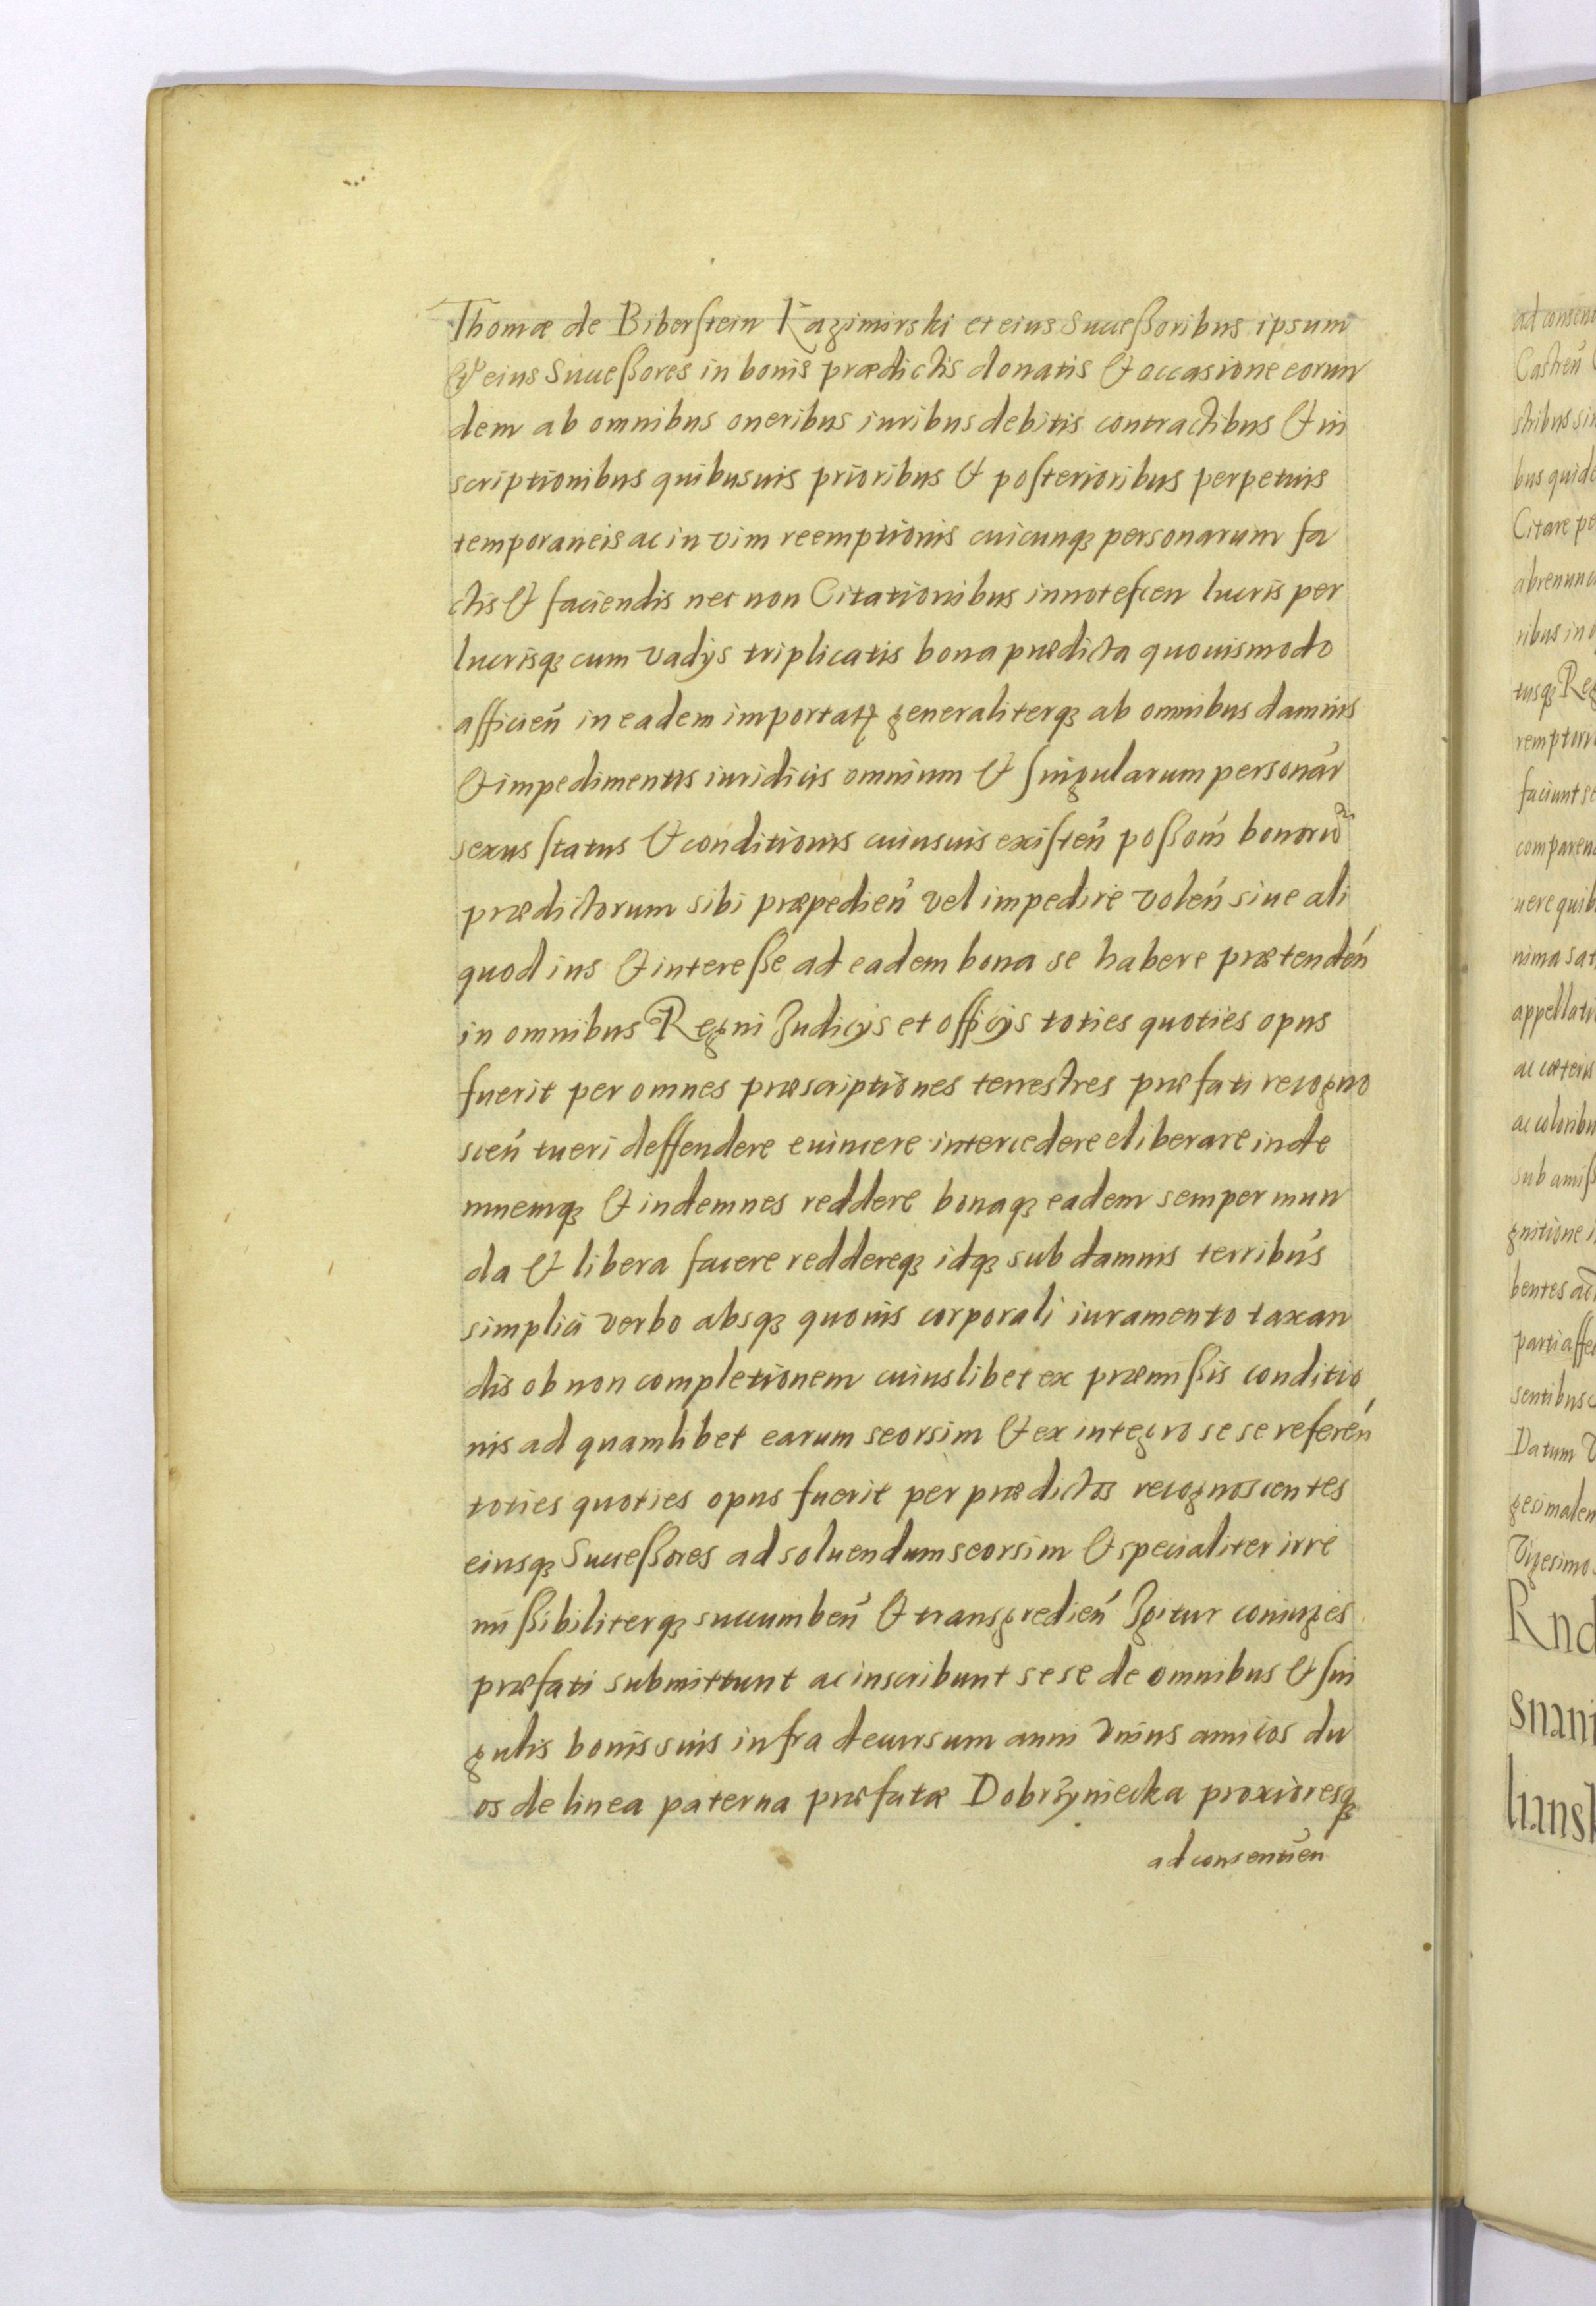 Thomæ de Biberstein Kazimirski et eius Successoribus ipsum
& eius Successores in bonis prædictis donatis & occasione eorun
dem ab omnibus oneribus iuribus debitis contractibus & in
scriptionibus quibusuis prioribus & posterioribus perpetuis
temporaneis ac in vim reemptionis cuicunqꝫ personarum fa
ctis & faciendis nec non Citationibus innotescen lucris per
lucrisqꝫ cum vadijs triplicatis bona prædicta quouismodo
afficień in eadem importatꝶ generaliterqꝫ ab omnibus damnis
& impedimentis iuridicis omnium & singularum personár
sexus status & conditionis cuiusuis existeń possom̃ bonorũ
prædictorum sibi præpedień vel impedire voleń siue ali
quod ius & interesse ad eadem bona se habere prætendeń
in omnibus Regni Judicijs et officijs toties quoties opus
fuerit per omnes præscriptiones terrestres præfati recogno
sceń tueri deffendere euincere intercedere eliberare inde
mnemqꝫ & indemnes reddere bonaqꝫ eadem semper mun
da & libera facere reddereqꝫ idqꝫ sub damnis terribús
simplici verbo absqꝫ quouis corporali iuramento taxan
dis ob non completionem cuiuslibet ex præmissis conditio
nis ad quamlibet earum seorsim & ex integro se se refereń
toties quoties opus fuerit per prædictos recognoscentes
eiusqꝫ Successores ad soluendum seorsim & specialiter irre
missibiliterqꝫ succumbeń & transgredień Igitur coniuges
præfati submittunt ac inscribunt se se de omnibus & sin
gulis bonis suis infra decursum anni vnius amicos du
os de linea paterna præfatæ Dobrzyniecka proxioresqꝫ
ad consentień
ad consent
Castreń
bus quide
Citare pe
abrenunc
nibus in q
tusqꝫ Reg
faciunt se
comparen
uere quib
nima sat
appellati
ac cæteris
ac colonbu
sub amiss
gnitione i
bentes
parti affe
sentibus
Datum
gesimalem
Vigesimo